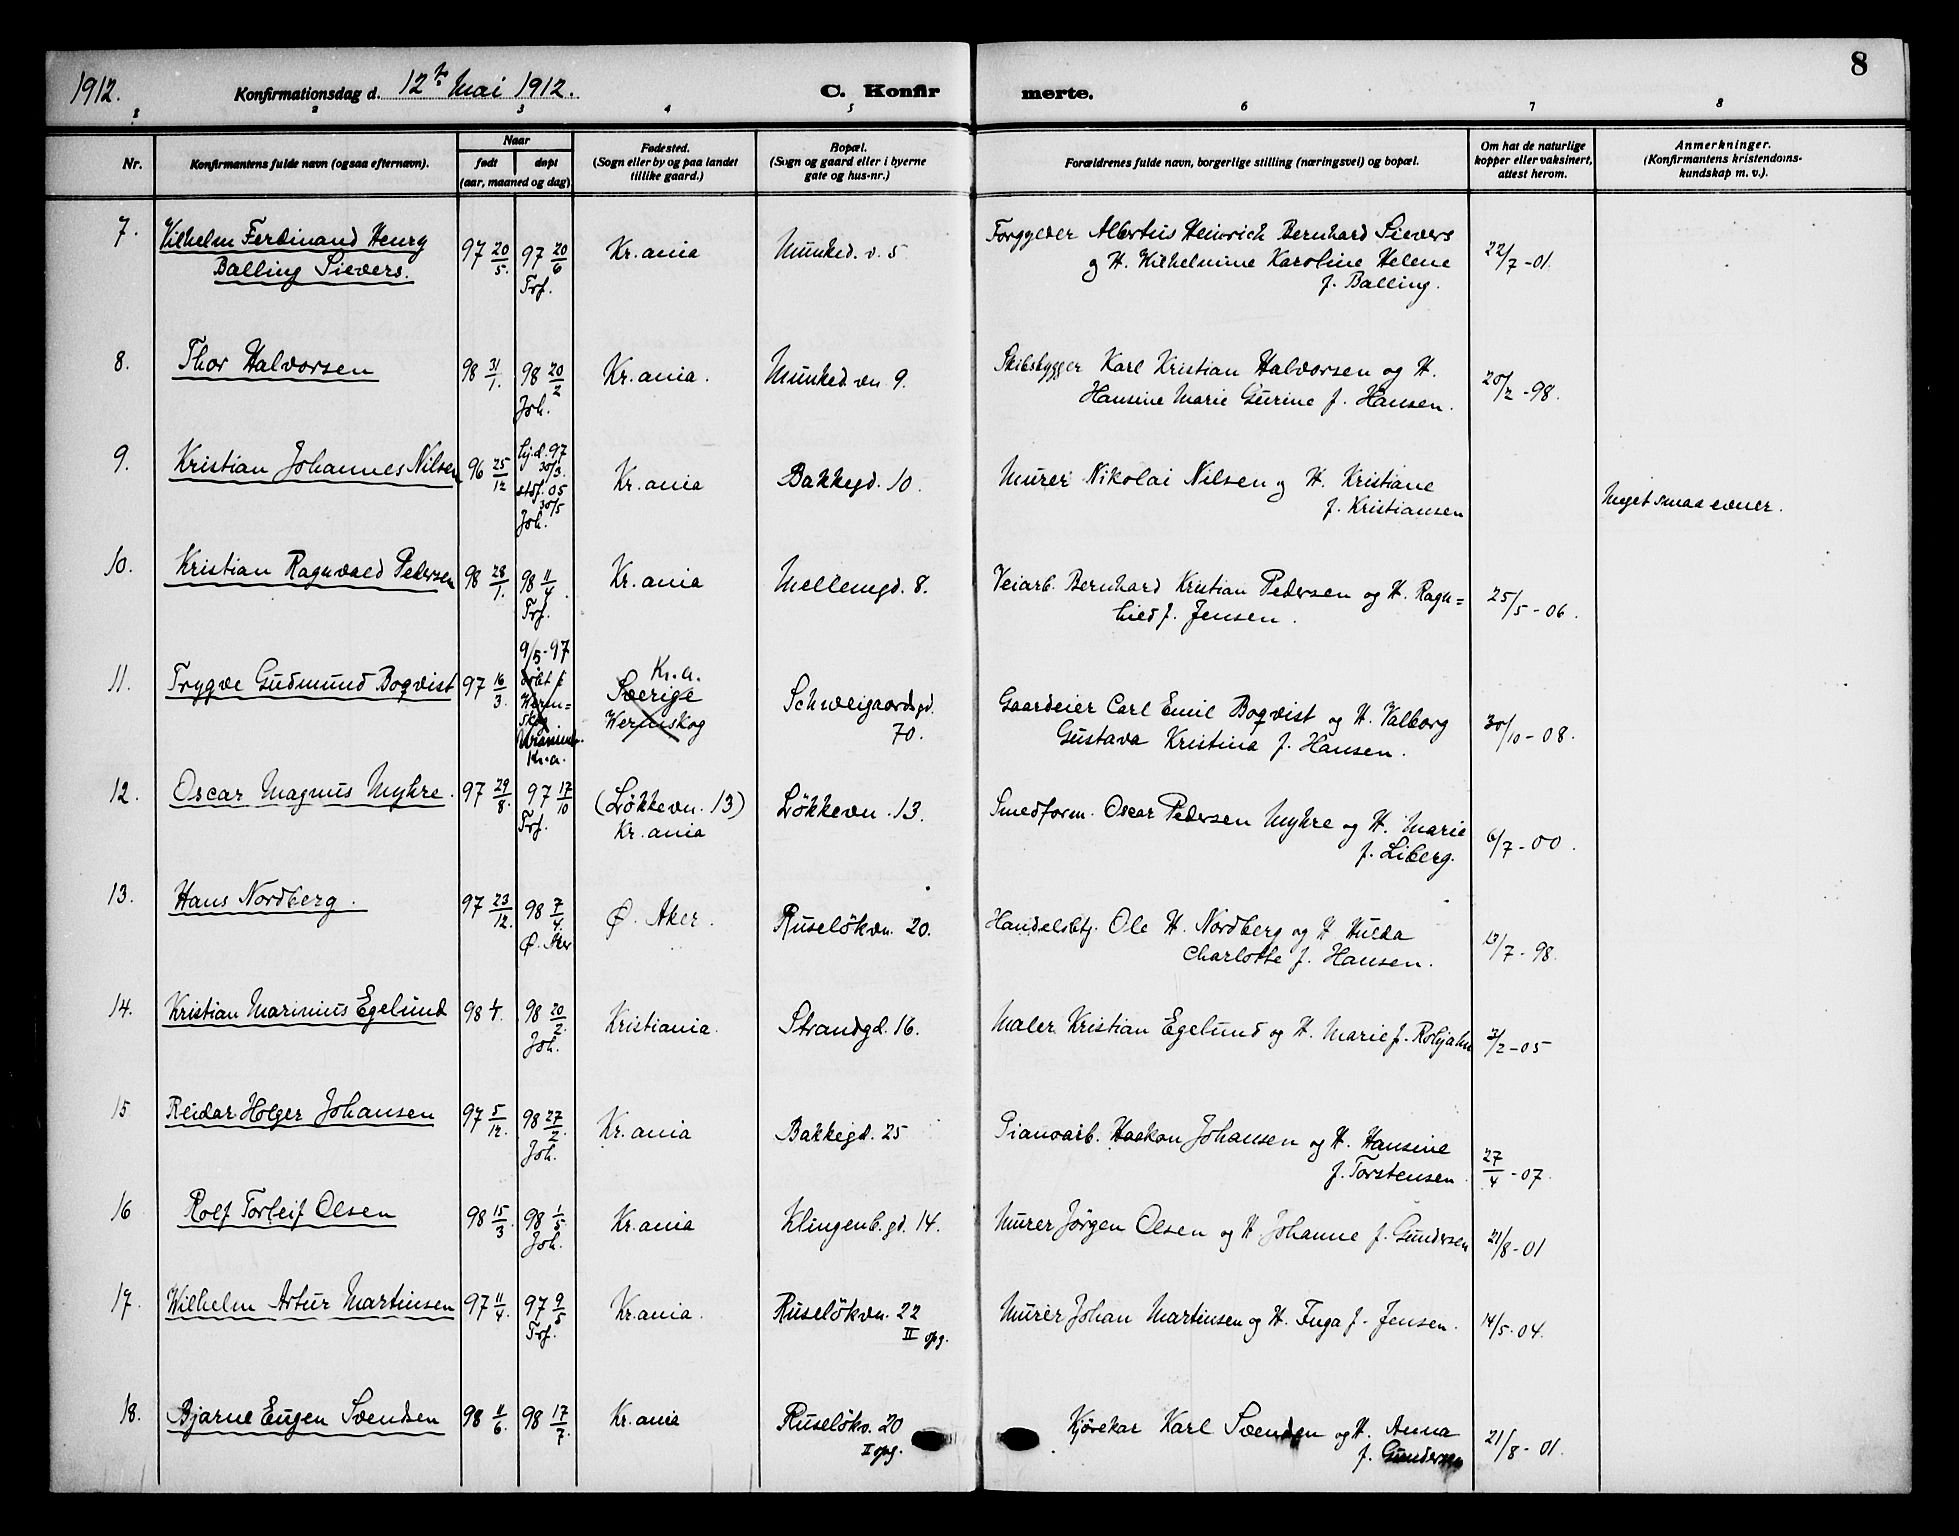 8
1912. Konfirmationsdag d. 12te Mai 1912. C. Konfir merte.
1 2 3 4 5 6 7 8
Nr. Konfirmantens fulde navn (ogsaa efternavn). Naar født døpt (aar, maaned og dag) Fødested. (Sogn eller by og paa landet tillike gaard.) Bopæl. (Sogn og gaard eller i byerne gate og hus-nr.) Forældrenes fulde navn, borgerlige stilling (næringsvei) og bopæl. Om hat de naturlige kopper eller vaksinert, attest herom. Anmerkninger. (Konfirmantens kristendomskundskap m. v.).
7. Vilhelm Ferdinand Henry 97 20/5. 97 20/6 Kr.ania Munked. v. 5 Forgylder Albertus Heinrich Bernhard Sievers 22/7-01.
Balling Sievers. Trf. og H. Wilhelmine Karoline Helene
f. Balling.
8. Thor Halvorsen 98 31/1. 98 20/2 Kr.ania. Munked.vn. 9. Skibsbygger Karl Kristian Halvorsen og H. 20/2-98.
Joh. Hansine Marie Gurine f. Hansen.
9. Kristian Johannes Nilsen 96 25/12 hj.d. 97 30/3. Kr.ania Bakkegd. 10. Murer Nikolai Nilsen og H. Kristiane Meget smaa evner.
stdf. 05 30/5 f. Kristiansen
Joh.
10. Kristian Ragnvald Pedersen 98 28/1. 98 11/4. Kr.ania Mellemgd. 8. Veiarb. Bernhard Kristian Pedersen og H. Ragn= 25/5-06.
Trf. hild f. Jensen.
11. Trygve Gudmund Boqvist 97 16/3. 9/5-97 Kr.a. Sverige Wermskog Schweigaardsgd. 70. Gaardeier Carl Emil Boqvist og H. Valborg 30/10-08.
Werm=
skog
Kr.a. Gustava Kristina f. Hansen.
12. Oscar Magnus Myhre. 97 29/8. 97 17/10 (Løkkevn. 13) Løkkevn. 13. Smedform. Oscar Pedersen Myhre og H. Marie 6/7-00.
Trf. Kr.ania f. Liberg.
13. Hans Nordberg. 97 23/12. 98 7/4. Ø. Aker. Ruseløkvn. 20. Handelsbtj. Ole H. Nordberg og H Hulda 13/7-98.
Ø. Aker Charlotte f. Hansen.
14. Kristian Marinius Egelund 98 1/1. 98 20/2. Kristiania. Strandgd. 16. Maler Kristian Egelund og H. Marie f. Robjahn 3/2-05
Joh.
15 Reidar Holger Johansen 97 5/12. 98 27/2. Kr.ania Bakkegd. 25 Pianoarb. Haakon Johansen og H. Hansine 27/4-07.
Joh. f. Torstensen.
16 Rolf Torleif Olsen 98 15/3. 98 1/5. Kr.ania Klingenb.gd. 14. Murer Jørgen Olsen og H. Johanne f. Gundersen 21/8-01
Joh.
17. Wilhelm Artur Martinsen 97 11/4. 97 9/5 Kr.ania. Ruseløkvn. 22 Murer Johan Martinsen og H. Inga f. Jensen. 14/5-04.
Trf. II opg.
18. Bjarne Eugen Svendsen 98 11/6. 98 17/7. Kr.ania Ruseløkv. 20 Kjørekar Karl Svendsen og H. Anna 21/8-01.
II opg. f. Gundersen